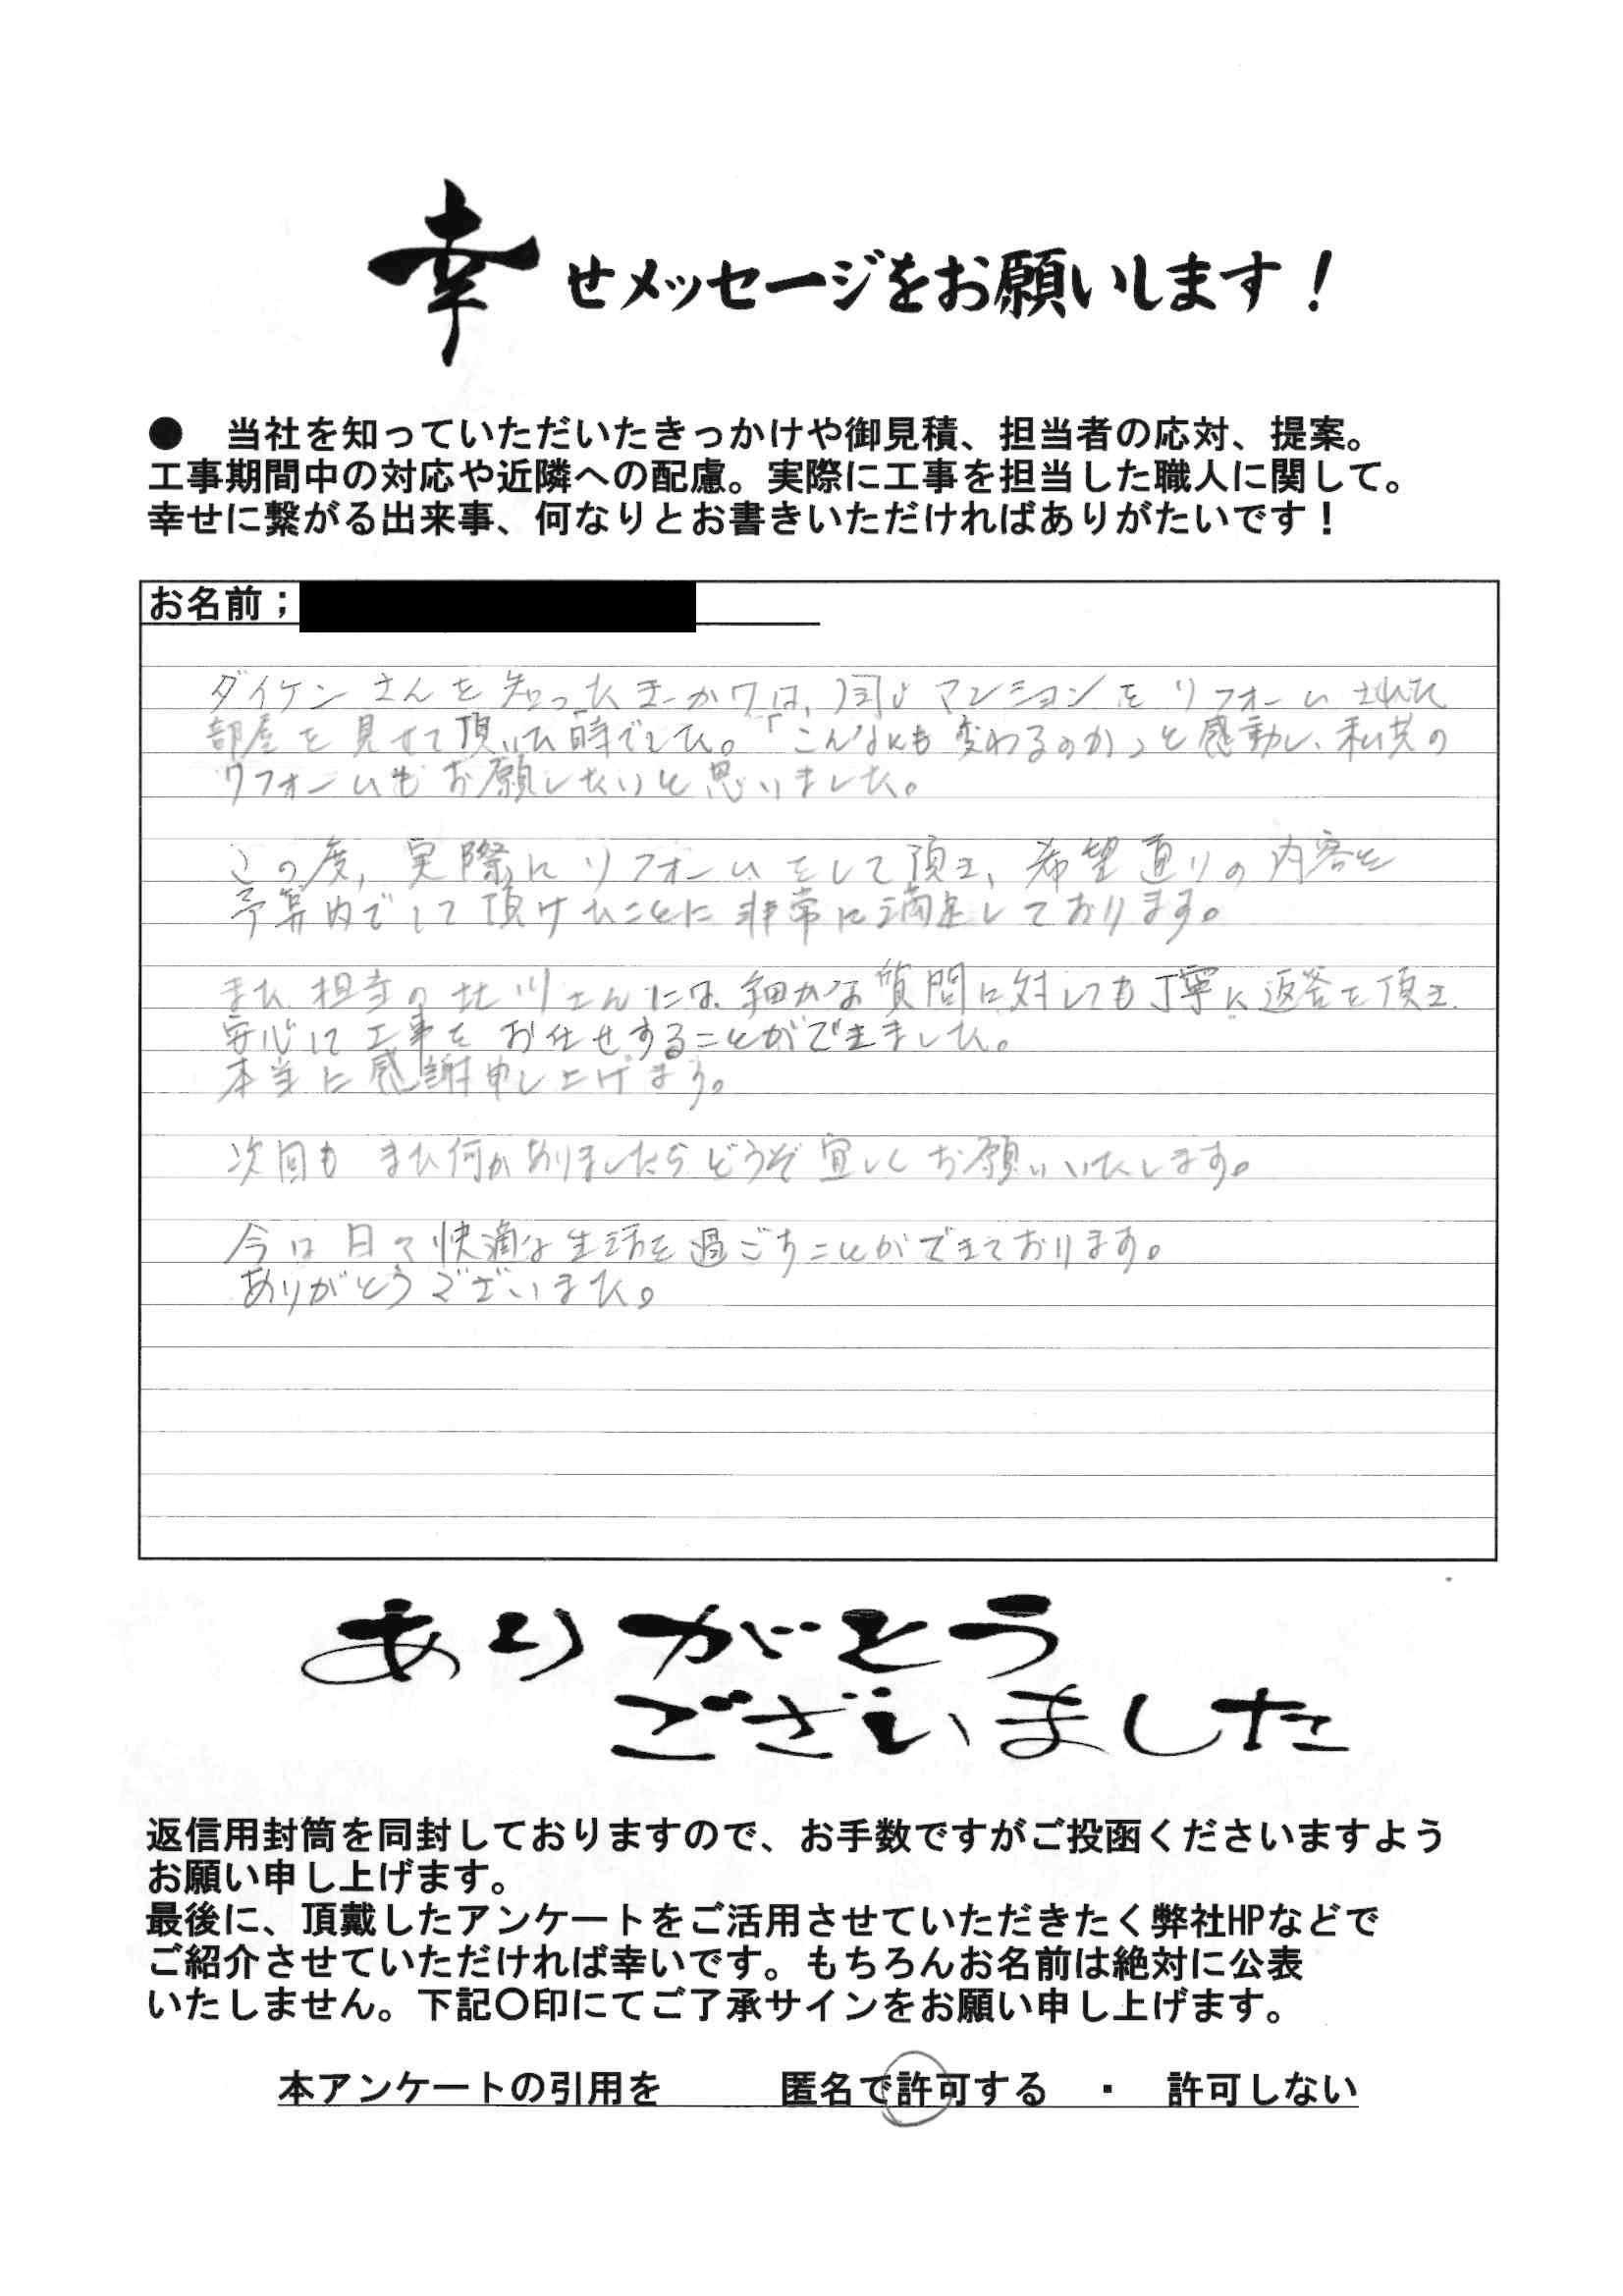 幸せメッセージをお願いします!
● 当社を知っていただいたきっかけや御見積、担当者の応対、提案。
工事期間中の対応や近隣への配慮。実際に工事を担当した職人に関して。
幸せに繋がる出来事、何なりとお書きいただければありがたいです!
お名前;
ダイケンさんを知ったきっかけは、同じマンションをリフォームされた
部屋を見せて頂いた時でした。「こんなにも変わるのか」と感動し、私共の
リフォームもお願したいと思いました。
この度、実際にリフォームをして頂き、希望通りの内容を
予算内でして頂けたことに非常に満足しております。
また担当の北川さんには、細かな質問に対しても丁寧に返答を頂き、
安心して工事をお任せすることができました。
本当に感謝申し上げます。
次回もまた何かありましたらどうぞ宜しくお願いいたします。
今は日々快適な生活を過ごすことができております。
ありがとうございました。
ありがとう
ございました
返信用封筒を同封しておりますので、お手数ですがご投函くださいますよう
お願い申し上げます。
最後に、頂戴したアンケートをご活用させていただきたく弊社HPなどで
ご紹介させていただければ幸いです。もちろんお名前は絶対に公表
いたしません。下記〇印にてご了承サインをお願い申し上げます。
本アンケートの引用を 匿名で許可する ・ 許可しない